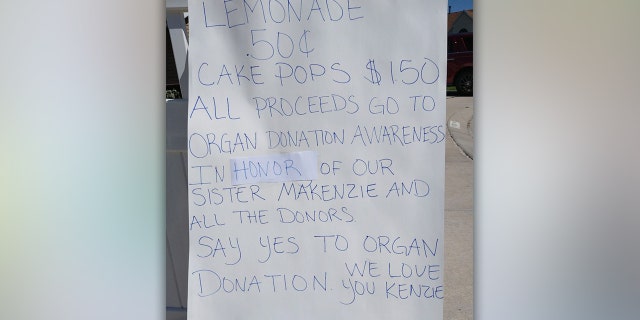 LEMONADE
.50¢
CAKE POPS $1.50
ALL PROCEEDS GO TO
ORGAN DONATION AWARENESS
IN HONOR OF OUR
SISTER MAKENZIE AND
ALL THE DONORS
SAY YES TO ORGAN
DONATION. WE LOVE
YOU KENZIE